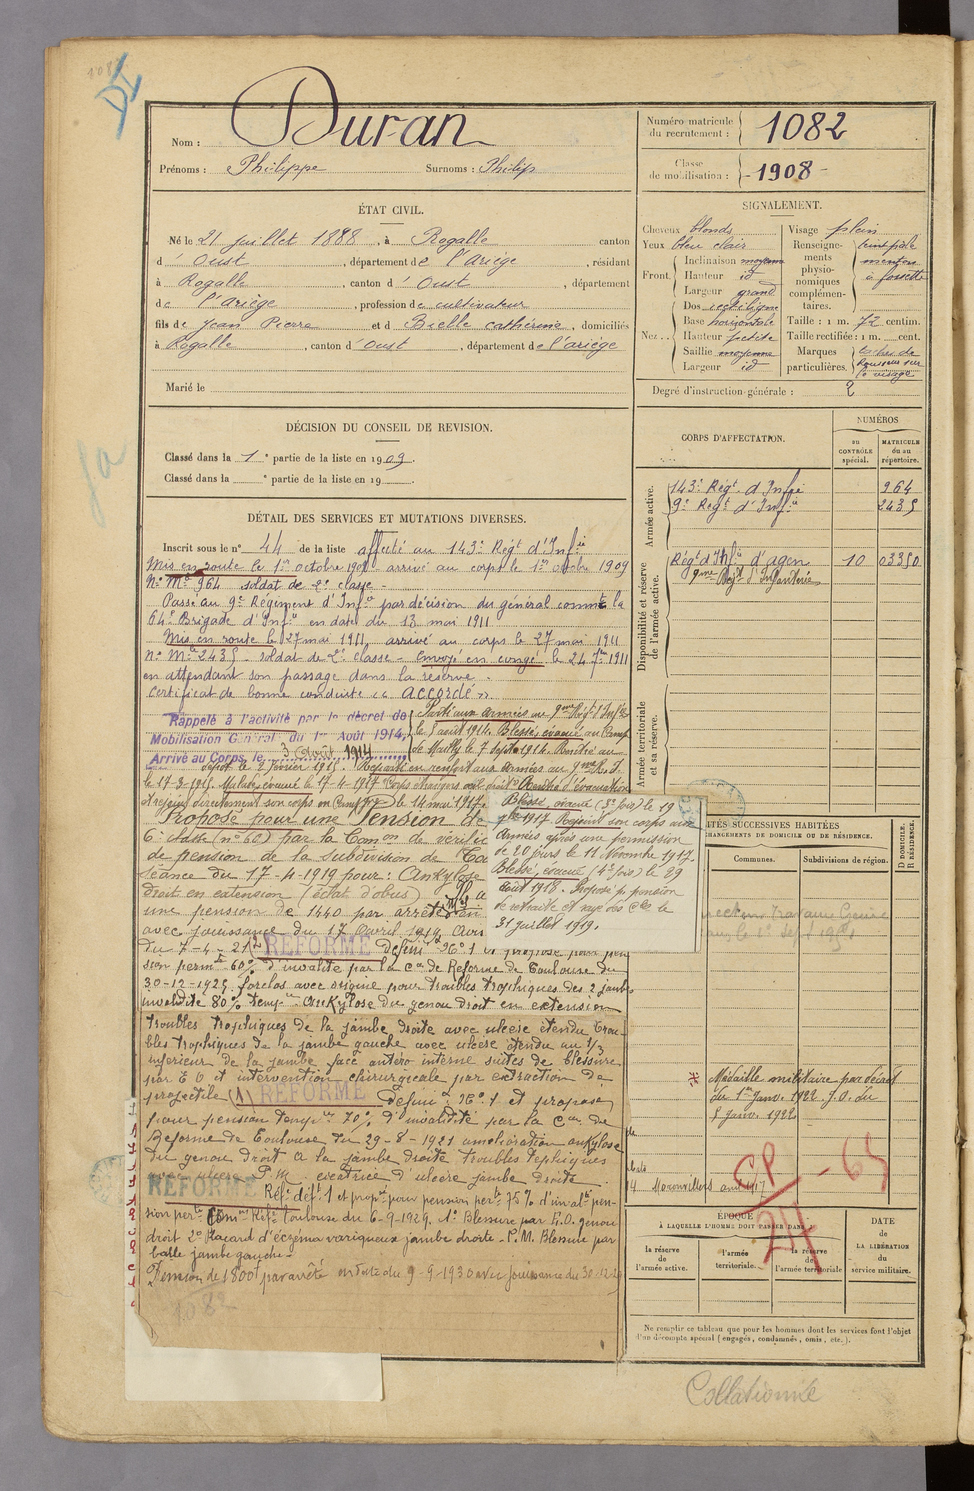 Nom : Duran
Prénoms : Philippe Surnoms : Philip
ÉTAT CIVIL.
Né le 21 juillet 1888, à Rogalle canton
d'Oust, département de l'Ariège, résidant
à Rogalle, canton d'Oust, département
de l'ariège, profession de cultivateur
fils de Jean Pierre et d Bielle Cathérine, domiciliés
à Rogalle, canton d'Oust, département de l'ariège
Marié le
DÉCISION DU CONSEIL DE REVISION.
Classé dans la 1e partie de la liste en 1909.
Classé dans la e partie de la liste en 19
DÉTAIL DES SERVICES ET MUTATIONS DIVERSES.
Inscrit sous le n° 44 de la liste affecté au 143e Régt d'Infie
Mis en route le 1er octobre 1909 arrivé au corps le 1er octobre 1909
N° Mle 964 soldat de 2e classe -
Passé au 9e Régiment d'Infie par décision du général commt la
64e Brigade d'Infie en date du 13 mai 1911
Mis en route le 27 mai 1911, arrivé au corps le 27 mai 1911
N° Mle 2435 - soldat de 2e classe - Envoyé en congé le 24 7bre 1911
en attendant son passage dans la réserve -
Certificat de bonne conduite « accordé »
Rappelé à l'activité par le décret de
Mobilisation Général du 1er Août 1914,
Arrivé au Corps le 3 Août 1914
Parti aux armées au 9me Régt d'Infie
le 5 août 1914. Blessé, évacué au Camp
de Mailly le 7 Septe 1914. Rentré au
dépôt le 2 février 1915. Reparti en renfort aux armées au 9me R.I.
le 17-3-1915. Malade évacué le 17-4-1917
et rejoint directement son corps le 14 mai 1917.
Blessé, évacué (3e fois) le 19
1917. Rejoint son corps aux
Armées après une permission
de 20 jours le 11 Novembre 1917.
Blessé, évacué (4e fois) le 29
Août 1918. Proposé pr pension
de retraite et rayé des Cles le
31 juillet 1919.
Proposé pour une Pension de
6e classe (n° 60) par la Comon de vérific
de pension de la Subdivision de
Séance du 17-4-1919 pour : Ankylose
droit en extension (éclat d'obus)
une pension de 1440 par arrêté
avec jouissance du 17 avril 1919
du 7-4-21 RÉFORMÉ défini N° 1 et proposé pour pen
sion permte 60% d'invalité par la Con de Réforme de Toulouse du
30-12-1925 forclos avec origine pour troubles trophiques des 2 jambes
invalidité 80% temp. ankylose du genou droit en extension
troubles trophiques de la jambe droite avec ulcère étendu trou-
bles trophiques de la jambe gauche avec ulcère étendu au 1/3
inférieur de la jambe face antéro interne suites de blessure
par E O et intervention chirurgicale par extraction de
projectile (1) RÉFORMÉ défini N° 1 et proposé
pour pension temp. 70% d'invalité par la Con de
Réforme de Toulouse du 29-8-1921 amélioration ankylose
du genou droit a la jambe droite troubles
P.M. cicatrice d'ulcère jambe droite
RÉFORMÉ Réf. déf. 1 et propt pour pension perte 75% d'invalté pen-
sion perte Comon Réfe Toulouse du 6-9-1929. 1° Blessure par E.O. genou
droit 2° Placard d'eczéma variqueux jambe droite - P.M. Blessure par
balle jambe gauche
Pension de 1800f par arrêté en date du 9-9-1930 avec jouissance du 30-12-29
1082
Numéro matricule du recrutement : 1082
Classe de mobilisation : - 1908 -
SIGNALEMENT.
Cheveux blonds Visage plein
Yeux bleu clair
Front. Inclinaison moyenne
Hauteur id
Largeur grand
Nez.. Dos rectiligne
Base horizontale
Hauteur petite
Saillie moyenne
Largeur id
Renseignements physionomiques complémentaires. teint pâle
menton
à fossette
Taille : 1 m. 72 centim.
Taille rectifiée : 1 m. cent.
Marques particulières. taches de
rousseur sur
le visage
Degré d'instruction générale : 2
CORPS D'AFFECTATION.
NUMÉROS
au CONTRÔLE spécial.
MATRICULE ou au répertoire.
Armée active.
143e Régt d'Infie 964
9e Régt d'Infie 2435
Disponibilité et réserve de l'armée active.
Régt d'Infie d'agen 10 03350
9me Régt d'Infanterie
Armée territoriale et sa réserve.
LOCALITÉS SUCCESSIVES HABITÉES
CHANGEMENTS DE DOMICILE OU DE RÉSIDENCE.
Communes. Subdivisions de région. D DOMICILE. R RÉSIDENCE.
Médaille militaire par décret
du 1er Janv. 1922 J.O. du
5 Janv. 1922
Moronvillers avril 1917
CP - 65
24
ÉPOQUE
À LAQUELLE L'HOMME DOIT PASSER DANS
la réserve de l'armée active. l'armée territoriale. la réserve de l'armée territoriale
DATE DE LA LIBÉRATION du service militaire.
Ne remplir ce tableau que pour les hommes dont les services font l'objet
d'un décompte spécial (engagés, condamnés, omis, etc.).
Collationné